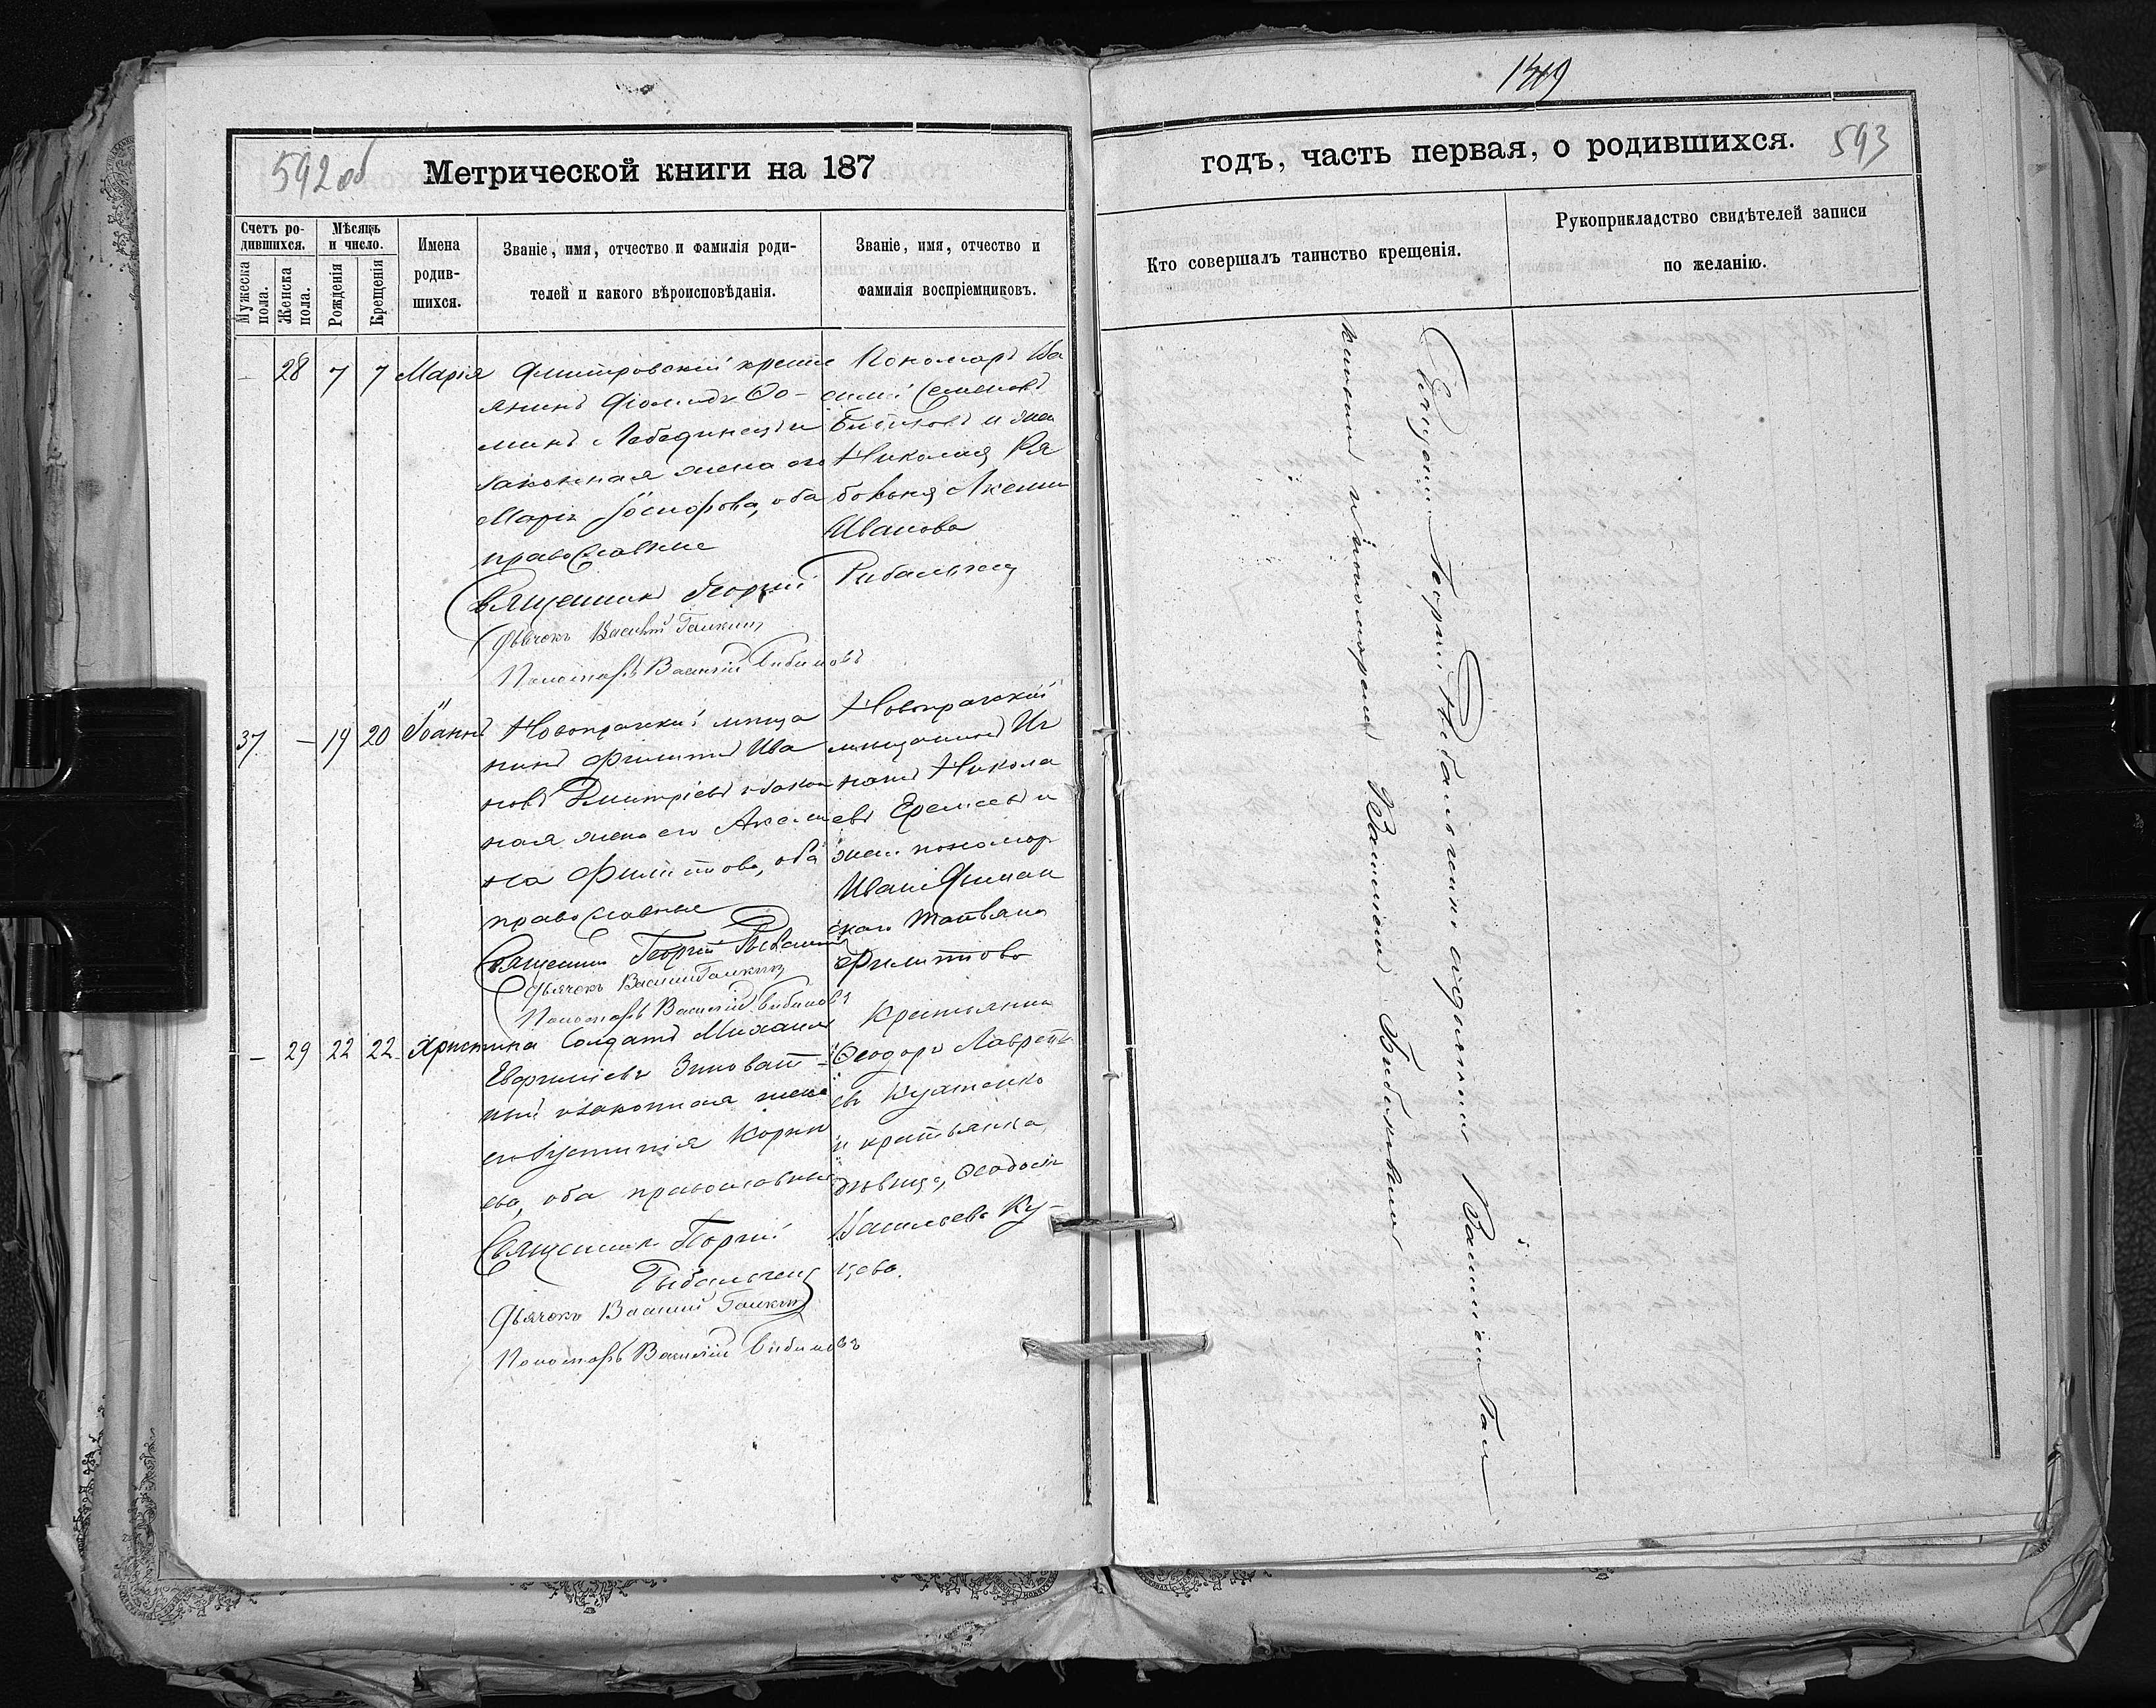 592 об
Метрической книги на 187
Счетъ ро-
дившихся.
Мужеска
пола.
Женска
пола.
Мѣсяцъ
и число.
Рожденія
Крещенія
Имена
родив-
шихся.
Званіе, имя, отчество и фамилія роди-
телей и какого вѣроисповѣданія.
Званіе, имя, отчество и
фамилія воспріемниковъ.
— 28 7 7 Марія
Дмитровскій кресть
янинъ Ѳо-
минъ Лебединецъ и
законная жена его
Марія Іосифова, оба
православные
Священникъ Георгій Рибальченко
Дьячекъ Василій Галкинъ
Пономарь Василій Бибиковъ
Пономарь Ва
силій Семеновъ
Бибиковъ и жена
Николая Ря
Ксенія
Иванова
37 — 19 20 Іоаннъ
Новопражскій мѣща
нинъ Филиппъ Ива
новъ Дмитріевъ и закон
ная жена его Аксин
Филиппова, оба
православные
Священникъ Георгій
Дьячекъ Василій Галкинъ
Пономарь Василій Бибиковъ
Новопражскій
мѣщанинъ Иг
натій Никола
евъ Еремеевъ и
жена пономар
Ивана
Татьяна
Филиппова
— 29 22 22 Христина
Солдатъ Михаилъ
Зиноват-
ный и законная жена
его Іустинія Корни
ева, оба православные
Священникъ Георгій
Рибальченко
Дьячекъ Василій Галкинъ
Пономарь Василій Бибиковъ
Крестьянинъ
Ѳеодоръ Лавренть
евъ
и крестьянка
дѣвица, Ѳеодосія
Васильева Ку-
цева.
149
годъ, часть первая, о родившихся.
593
Кто совершалъ таинство крещенія.
Рукоприкладство свидѣтелей записи
по желанію.
Священникъ Георгій Рибальченко съ дьячкомъ Василіемъ Гал
кинымъ и пономаремъ Василіемъ Бибиковымъ